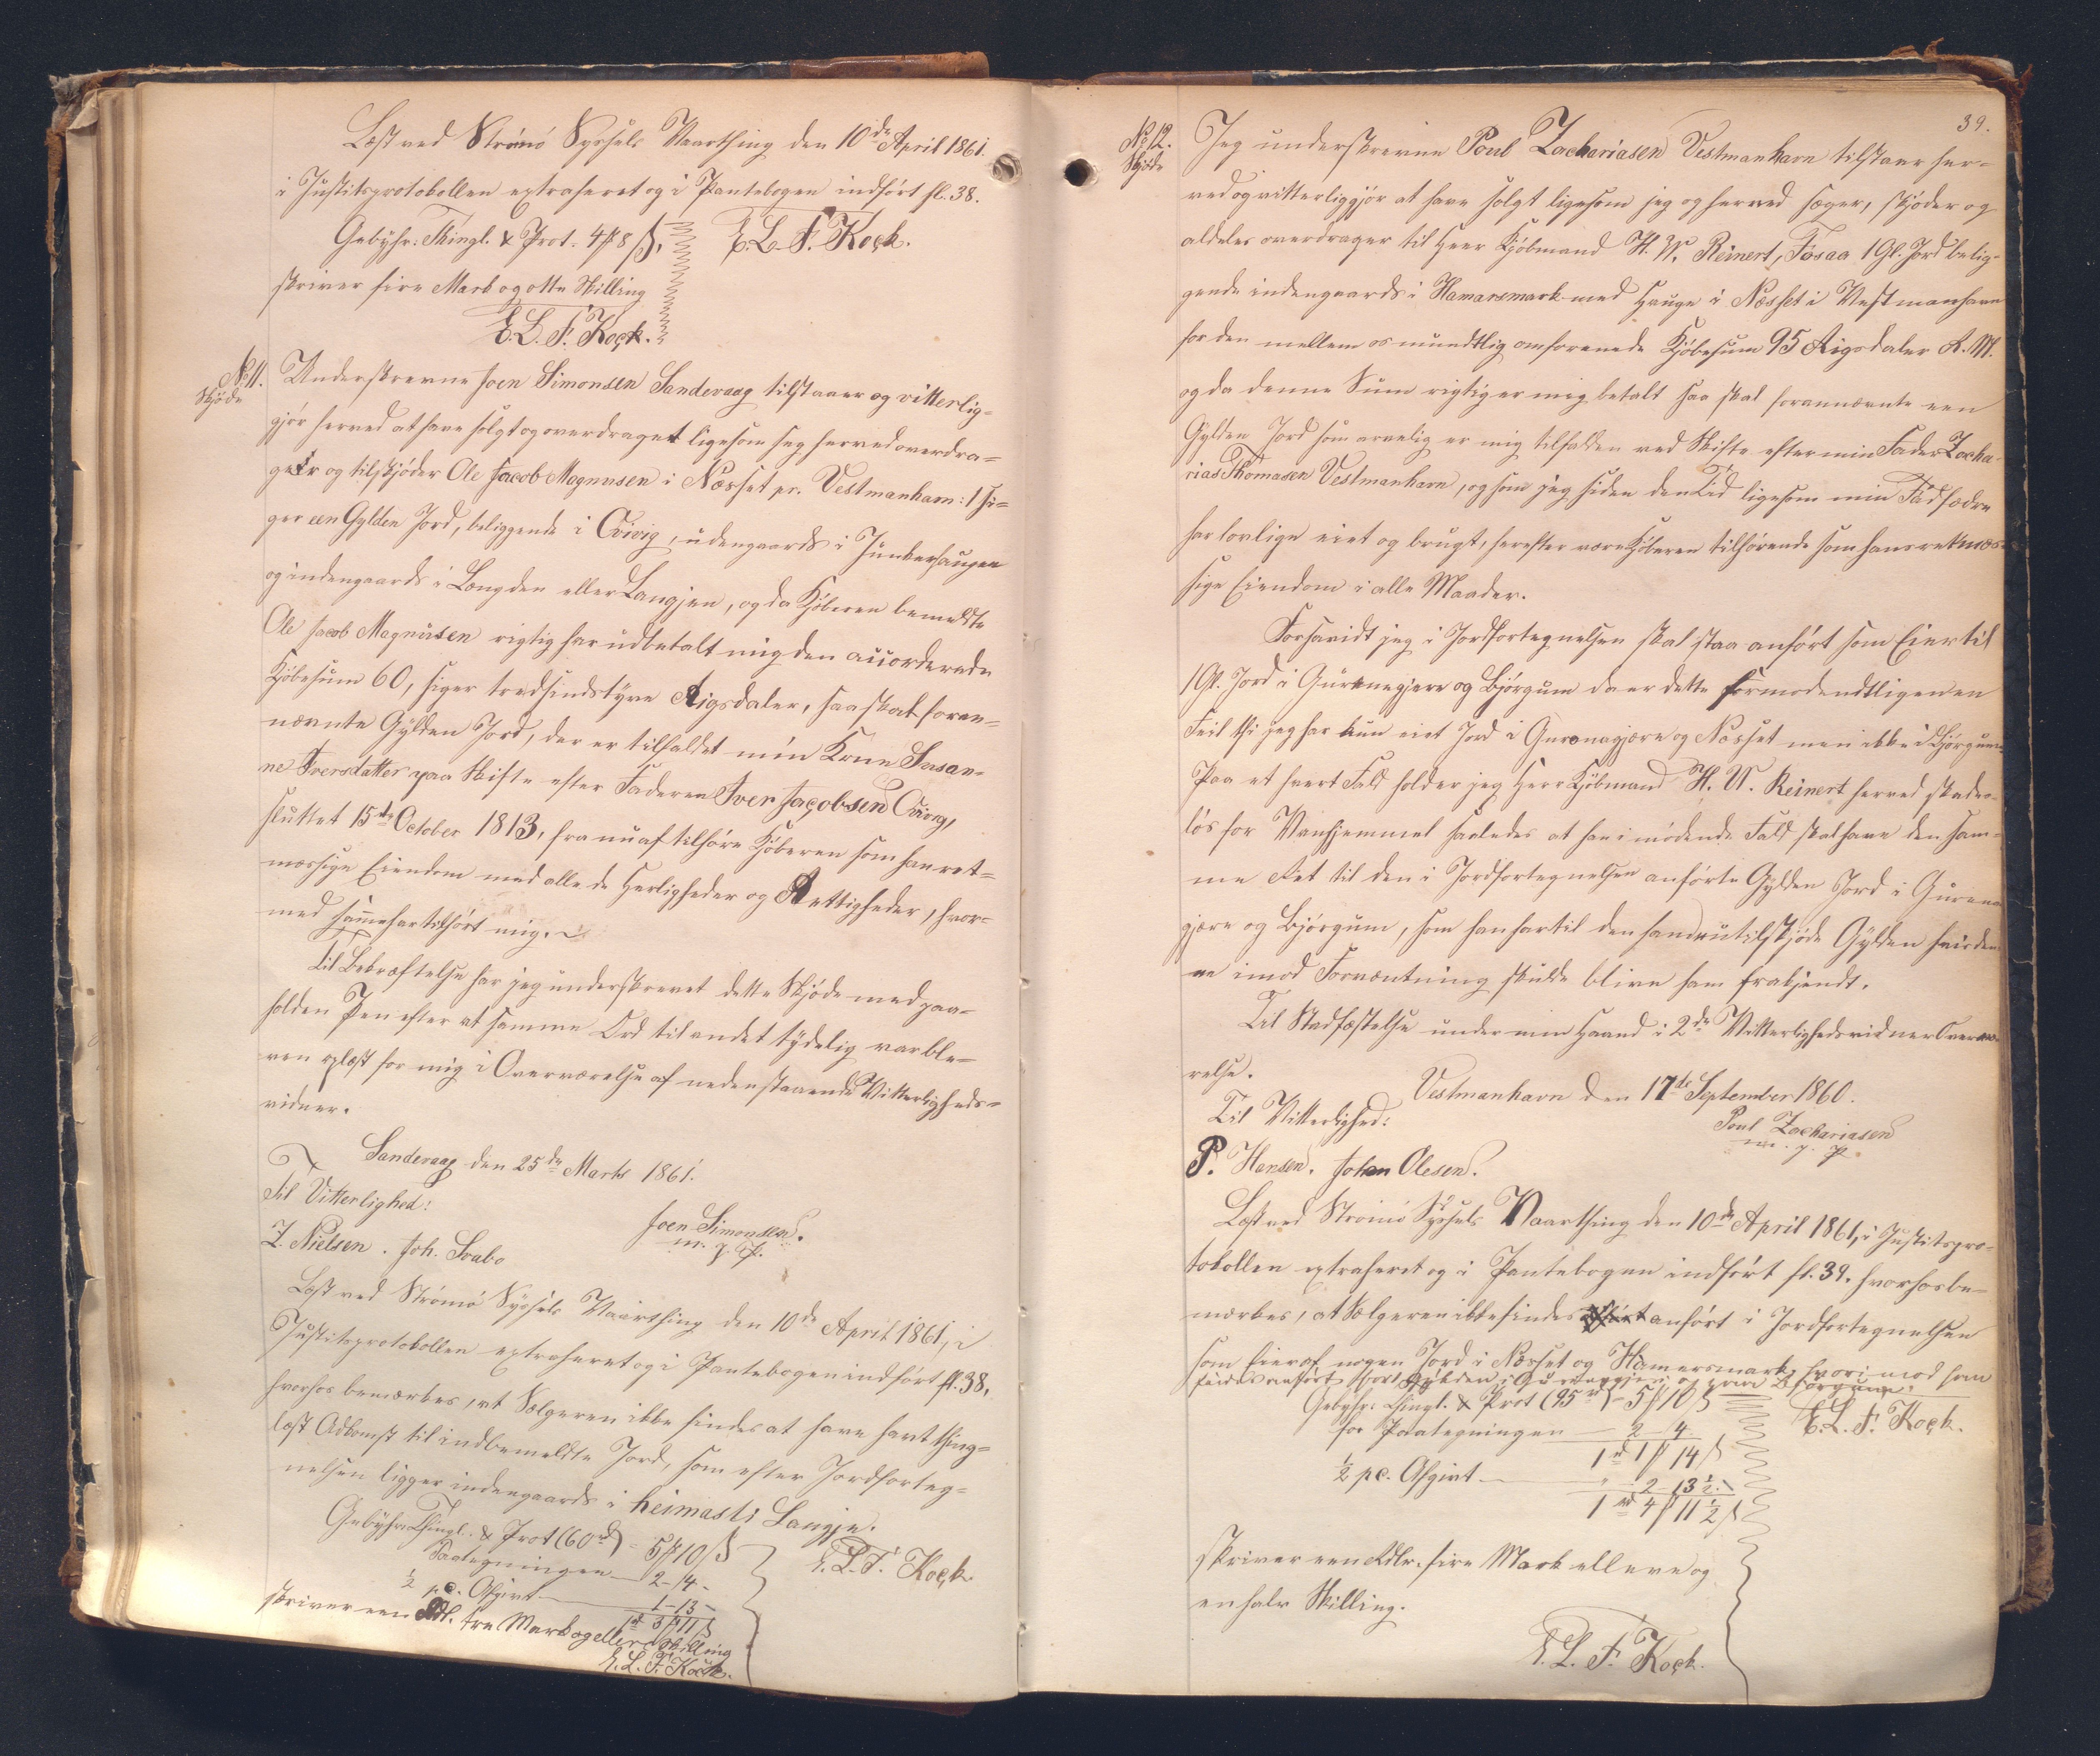 Læst ved Strömö Syssels Vaarthing den 10de April 1861.
i Justitsprotokollen extraheret og i Pantebogen indført fl. 38.
Gebyhr: Thingl. & Prot. 4 ℳ 8 ß,
E. L. F. Kock.
skriver fire Mark og otte Skilling
E. L. F. Kock.
No 11.
Skjöde
Underskrevne Joen Simonsen Sandevaag tilstaaer og vitterlig-
gjör herved at have solgt og overdraget ligesom jeg herved overdra-
ger og tilskjöder Ole Jacob Magnusen i Næsset pr. Vestmanhavn: 1 si-
ger een Gylden Jord, beliggende i Qvivig, udengaards i Junkerhaugen
og indengaards i Længden eller Langjen, og da Kjöberen bemeldte
Ole Jacob Magnusen rigtig har udbetalt mig den accorderede
Kjöbesum 60, siger tredsindstyve Rigsdaler, saa skal foran-
nævnte Gylden Jord, der er tilfaldet min Kone Susan-
ne Iversdatter paa Skifte efter Faderen Iver Jacobsen Qvivig,
sluttet 15de October 1813, fra nu af tilhöre Kjöberen som han ret-
mæssige Eiendom med alle de Herligheder og Rettigheder, hvor-
med samme har tilhört mig.
Til Bekræftelse har jeg underskrevet dette Skjöde med paa-
holden Pen efter at samme Ord til andet tydelig var ble-
ven oplæst for mig i Overværelse af nedenstaaende Vitterligheds-
vidner.
Sandevaag den 25de Marts 1861.
Til Vitterlighed:
Joen Simonsen.
m. p. P.
Z. Nielsen. Joh. Svabo
Læst ved Strömö Syssels Vaarthing den 10de April 1861, i
Justitsprotokollen extraheret og i Pantebogen indført fl. 38,
hvorhos bemærkes, at Sælgeren ikke findes at have havt thing-
læst Adkomst til indbemeldte Jord, som efter Jordforteg-
nelsen ligger indengaards i heimasti Langje.
Gebyhr: Thingl. & Prot (60 rd) = 5 ℳ 10 ß
E. L. F. Kock
Paategningen — 2 - 4 -
½ p.c. Afgivt — 1 - 13 -
1 rd 3 ℳ 11 ß
skriver een Rdl. tre Mark og elleve Skilling
E. L. F. Kock.
39.
No 12.
Skjöde
Jeg underskrevne Poul Zachariasen Vestmanhavn tilstaaer her-
ved og vitterliggjör at have solgt ligesom jeg og herved sælger, skjöder og
aldeles overdrager til Herr Kjöbmand H. W. Reinert, Fösaa 1 Gl. Jord belig-
gende indengaards i Hamarsmark med Hauge i Næsset i Vestmanhavn
for den mellem os mundtlig omforenede Kjöbesum 95 Rigsdaler R. M.
og da denne Sum rigtig er mig betalt saa skal forannævnte een
Gylden Jord som arvelig er mig tilfalden ved Skifte efter min Fader Zacha-
rias Thomasen Vestmanhavn, og som jeg siden den Tid ligesom min Fader før
har lovlige eiet og brugt, herefter være Kjöberen tilhörende som hans retmæs-
sige Eiendom i alle Maader.
Forsavidt jeg i Jordfortegnelsen skal staa anfört som Eier til
1 Gl. Jord i Gurenagjere og Björgum da er dette formodendtligen en
Feil thi jeg har kun eiet Jord i Gurenagjere og Næsset men ikke i Björgum
Paa et hvert Fald holder jeg Herr Kjöbmand H. W. Reinert herved skades-
lös for Vanhjemmel saaledes at han i mödende Fald skal have den sam-
me Ret til den i Jordfortegnelsen anförte Gylden Jord i Gurena-
gjere og Björgum, som han har til den ham nu tilskjöde Gylden hvis den-
ne imod Forventning skulde blive ham frakjendt.
Til Stadfæstelse under min Haand i 2de Vitterlighedsvidners Overvæ-
relse.
Vestmanhavn den 17de September 1860.
Til Vitterlighed:
Poul Zachariasen
m. p. P.
P. Hansen. Johan Olesen.
Læst ved Strömö Syssels Vaarthing den 10de April 1861, i Justitspro-
tokollen extraheret og i Pantebogen indfört fl. 39. hvorhos be-
mærkes, at Sælgeren ikke findes anfört i Jordfortegnelsen
som Eier af nogen Jord i Næsset og Hamersmark, hvorimod han
findes anfört for 1 Gylden i Gurenagjere og Björgum.
Gebyhr: Thingl. & Prot (95 rd) = 5 ℳ 10 ß
E. L. F. Kock.
for Paategningen — 2 - 4
1 rd 1 ℳ 14 ß
½ pc. Afgivt — " 2 - 13 ½
1 rd 4 ℳ 11 ½ ß
skriver een Rdlr. fire Mark elleve og
en halv Skilling.
E. L. F. Kock.